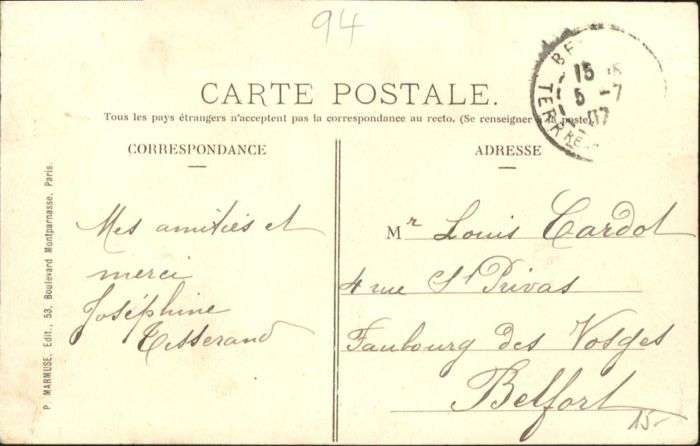 94
CARTE POSTALE.
Tous les pays étrangers n'acceptent pas la correspondance au recto. (Se renseigner à la poste)
CORRESPONDANCE
Mes amitiés et
merci
Joséphine
Tisserand
P. MARMUSE, Edit., 53, Boulevard Montparnasse, Paris.
ADRESSE
Mr Louis Cardot
4 rue St Privas
Faubourg des Vosges
Belfort
15-
BE
15
5 -7
07
TERR